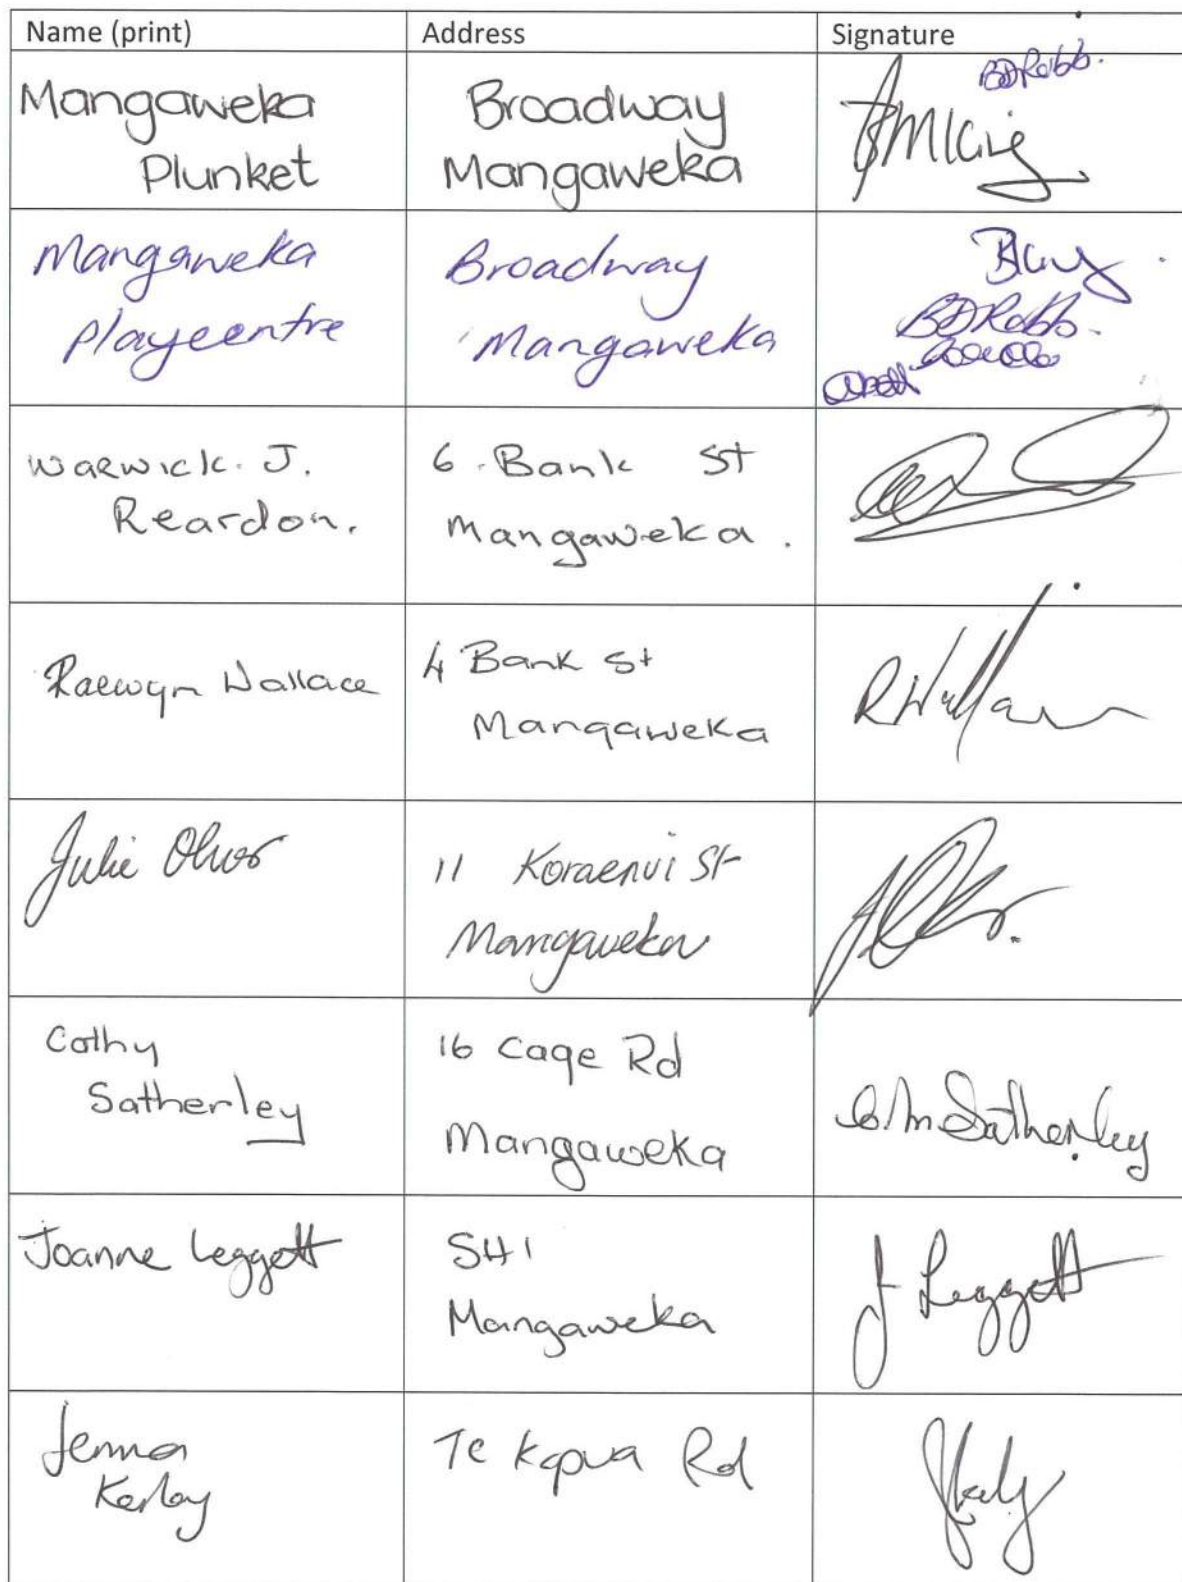 Name (print) Address Signature
Mangaweka Plunket
Broadway Mangaweka
BDRobb.
Mangaweka
Playcentre
Broadway
Mangaweka
BDRobb.
Warwick. J.
Reardon.
6. Bank St
Mangaweka.
Raewyn Wallace
4 Bank St
Mangaweka
R Wallace
Julie Oliver
11 Koraenui St
Mangaweka
Cathy
Satherley
16 Cage Rd
Mangaweka
C. M Satherley
Joanne Leggett
SH1
Mangaweka
J Leggett
Jenna
Kerley
Te Kapua Rd